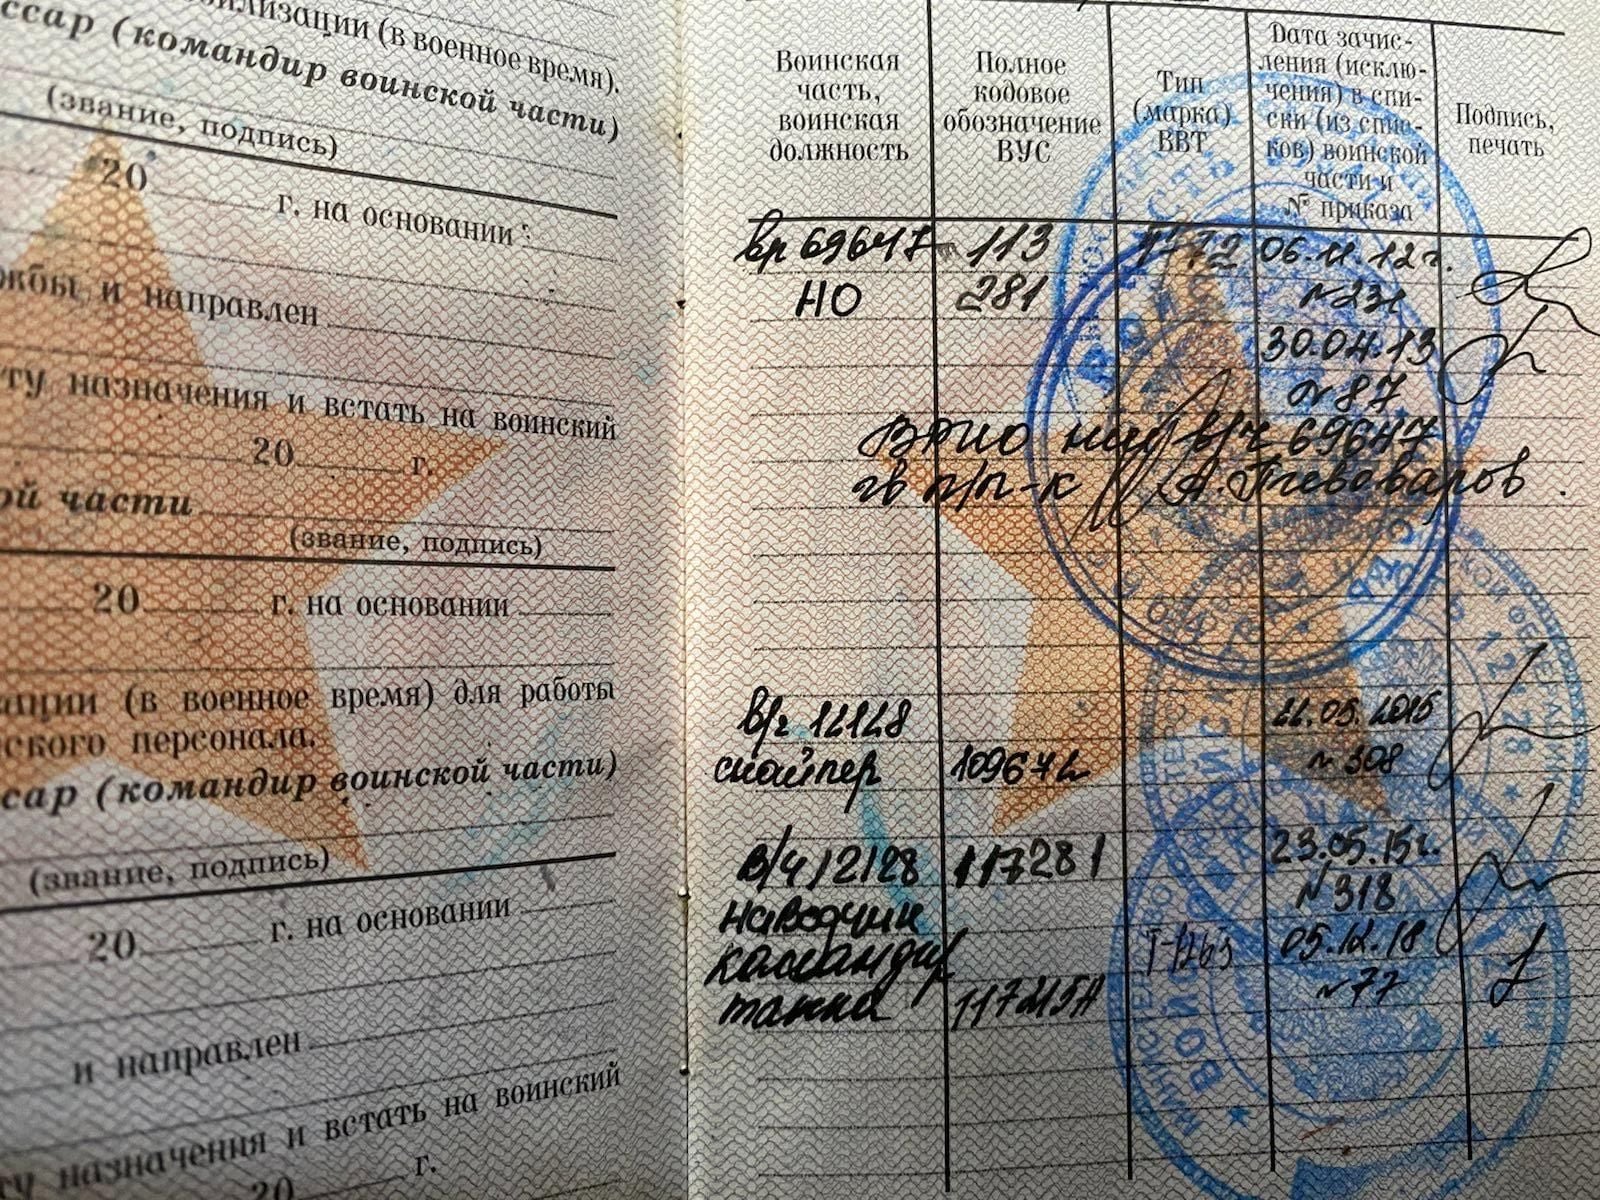 билизации (в военное время).
ссар (командир воинской части)
(звание, подпись)
20 г. на основании
жбы и направлен
ту назначения и встать на воинский
20 г.
ой части
(звание, подпись)
20 г. на основании
ации (в военное время) для работы
ского персонала.
сар (командир воинской части)
(звание, подпись)
20 г. на основании
и направлен
ту назначения и встать на воинский
20 г.
Воинская часть, воинская должность
Полное кодовое обозначение ВУС
Тип (марка) ВВТ
Дата зачис-
ления (исклю-
чения) в спи-
ски (из спис-
ков) воинской
части и
№ приказа
Подпись,
печать
69647 113 06.11.12г.
НО 281
30.04.13
№ 87
ВРИО нш в/ч 69647
гв п/п-к А. Пивоваров.
в/ч 12128 22.05.2015
снайпер 109672 № 308
в/ч 12128 117281 23.05.15г.
№ 318
наводчик
командир 05.12.18
танка № 77